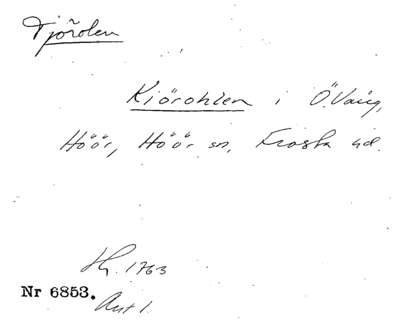 Tjörolen
Kiörohlen i Ö.Vång,
Höör, Höör sn, Frosta hd.
Hy. 1763
Nr 6853.
Akt 1.